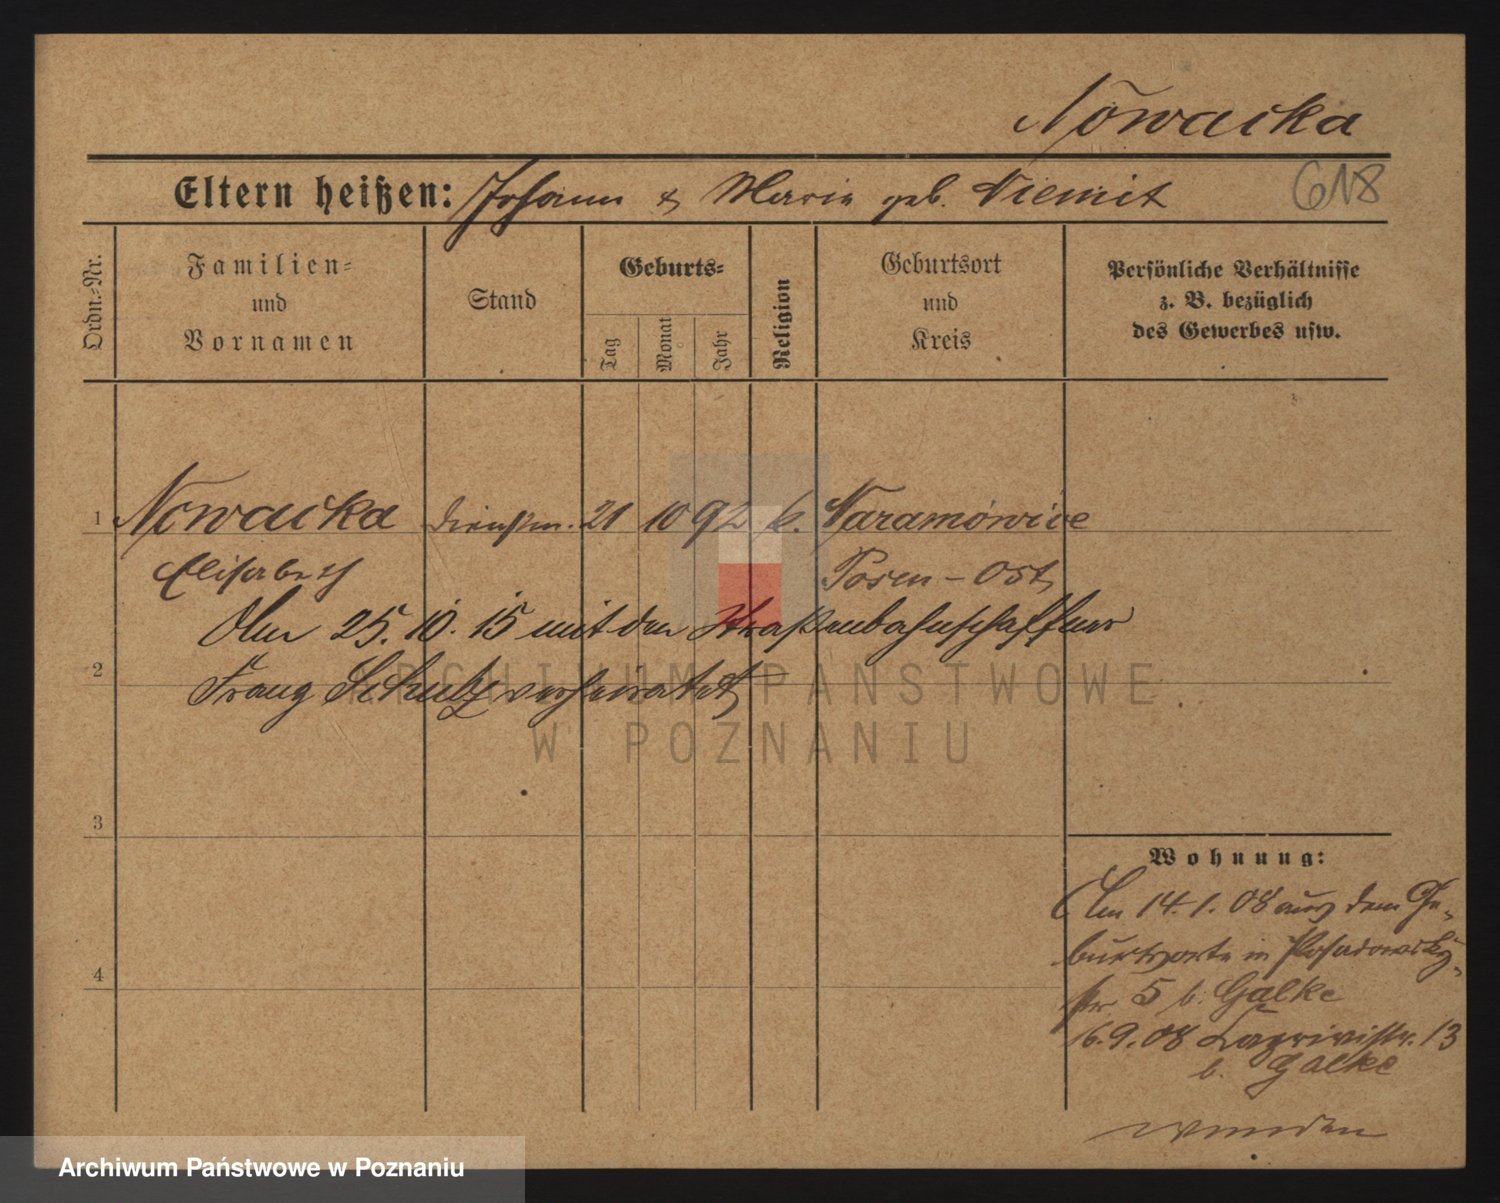 Nowacka
Eltern heißen: Johann & Maria geb. Niemit
618
Ordn.-Nr.
Familien-
und
Vornamen
Stand
Geburts-
Tag
Monat
Jahr
Religion
Geburtsort
und
Kreis
Persönliche Verhältnisse
z. B. bezüglich
des Gewerbes usw.
1 Nowacka Dienstm. 21 10 92 k. Naramowice
Elisabeth Posen-Ost
Am 25.10.15 mit dem Straßenbahnschaffner
2
Franz Schulz verheiratet
ARCHIWUM PAŃSTWOWE
W POZNANIU
3
Wohnung:
Am 14.1.08 aus dem Ge-
burtsorte in Posadowsky-
4
str 5 b. Galke
16.9.08 13
b. Galke
wenden
Archiwum Państwowe w Poznaniu